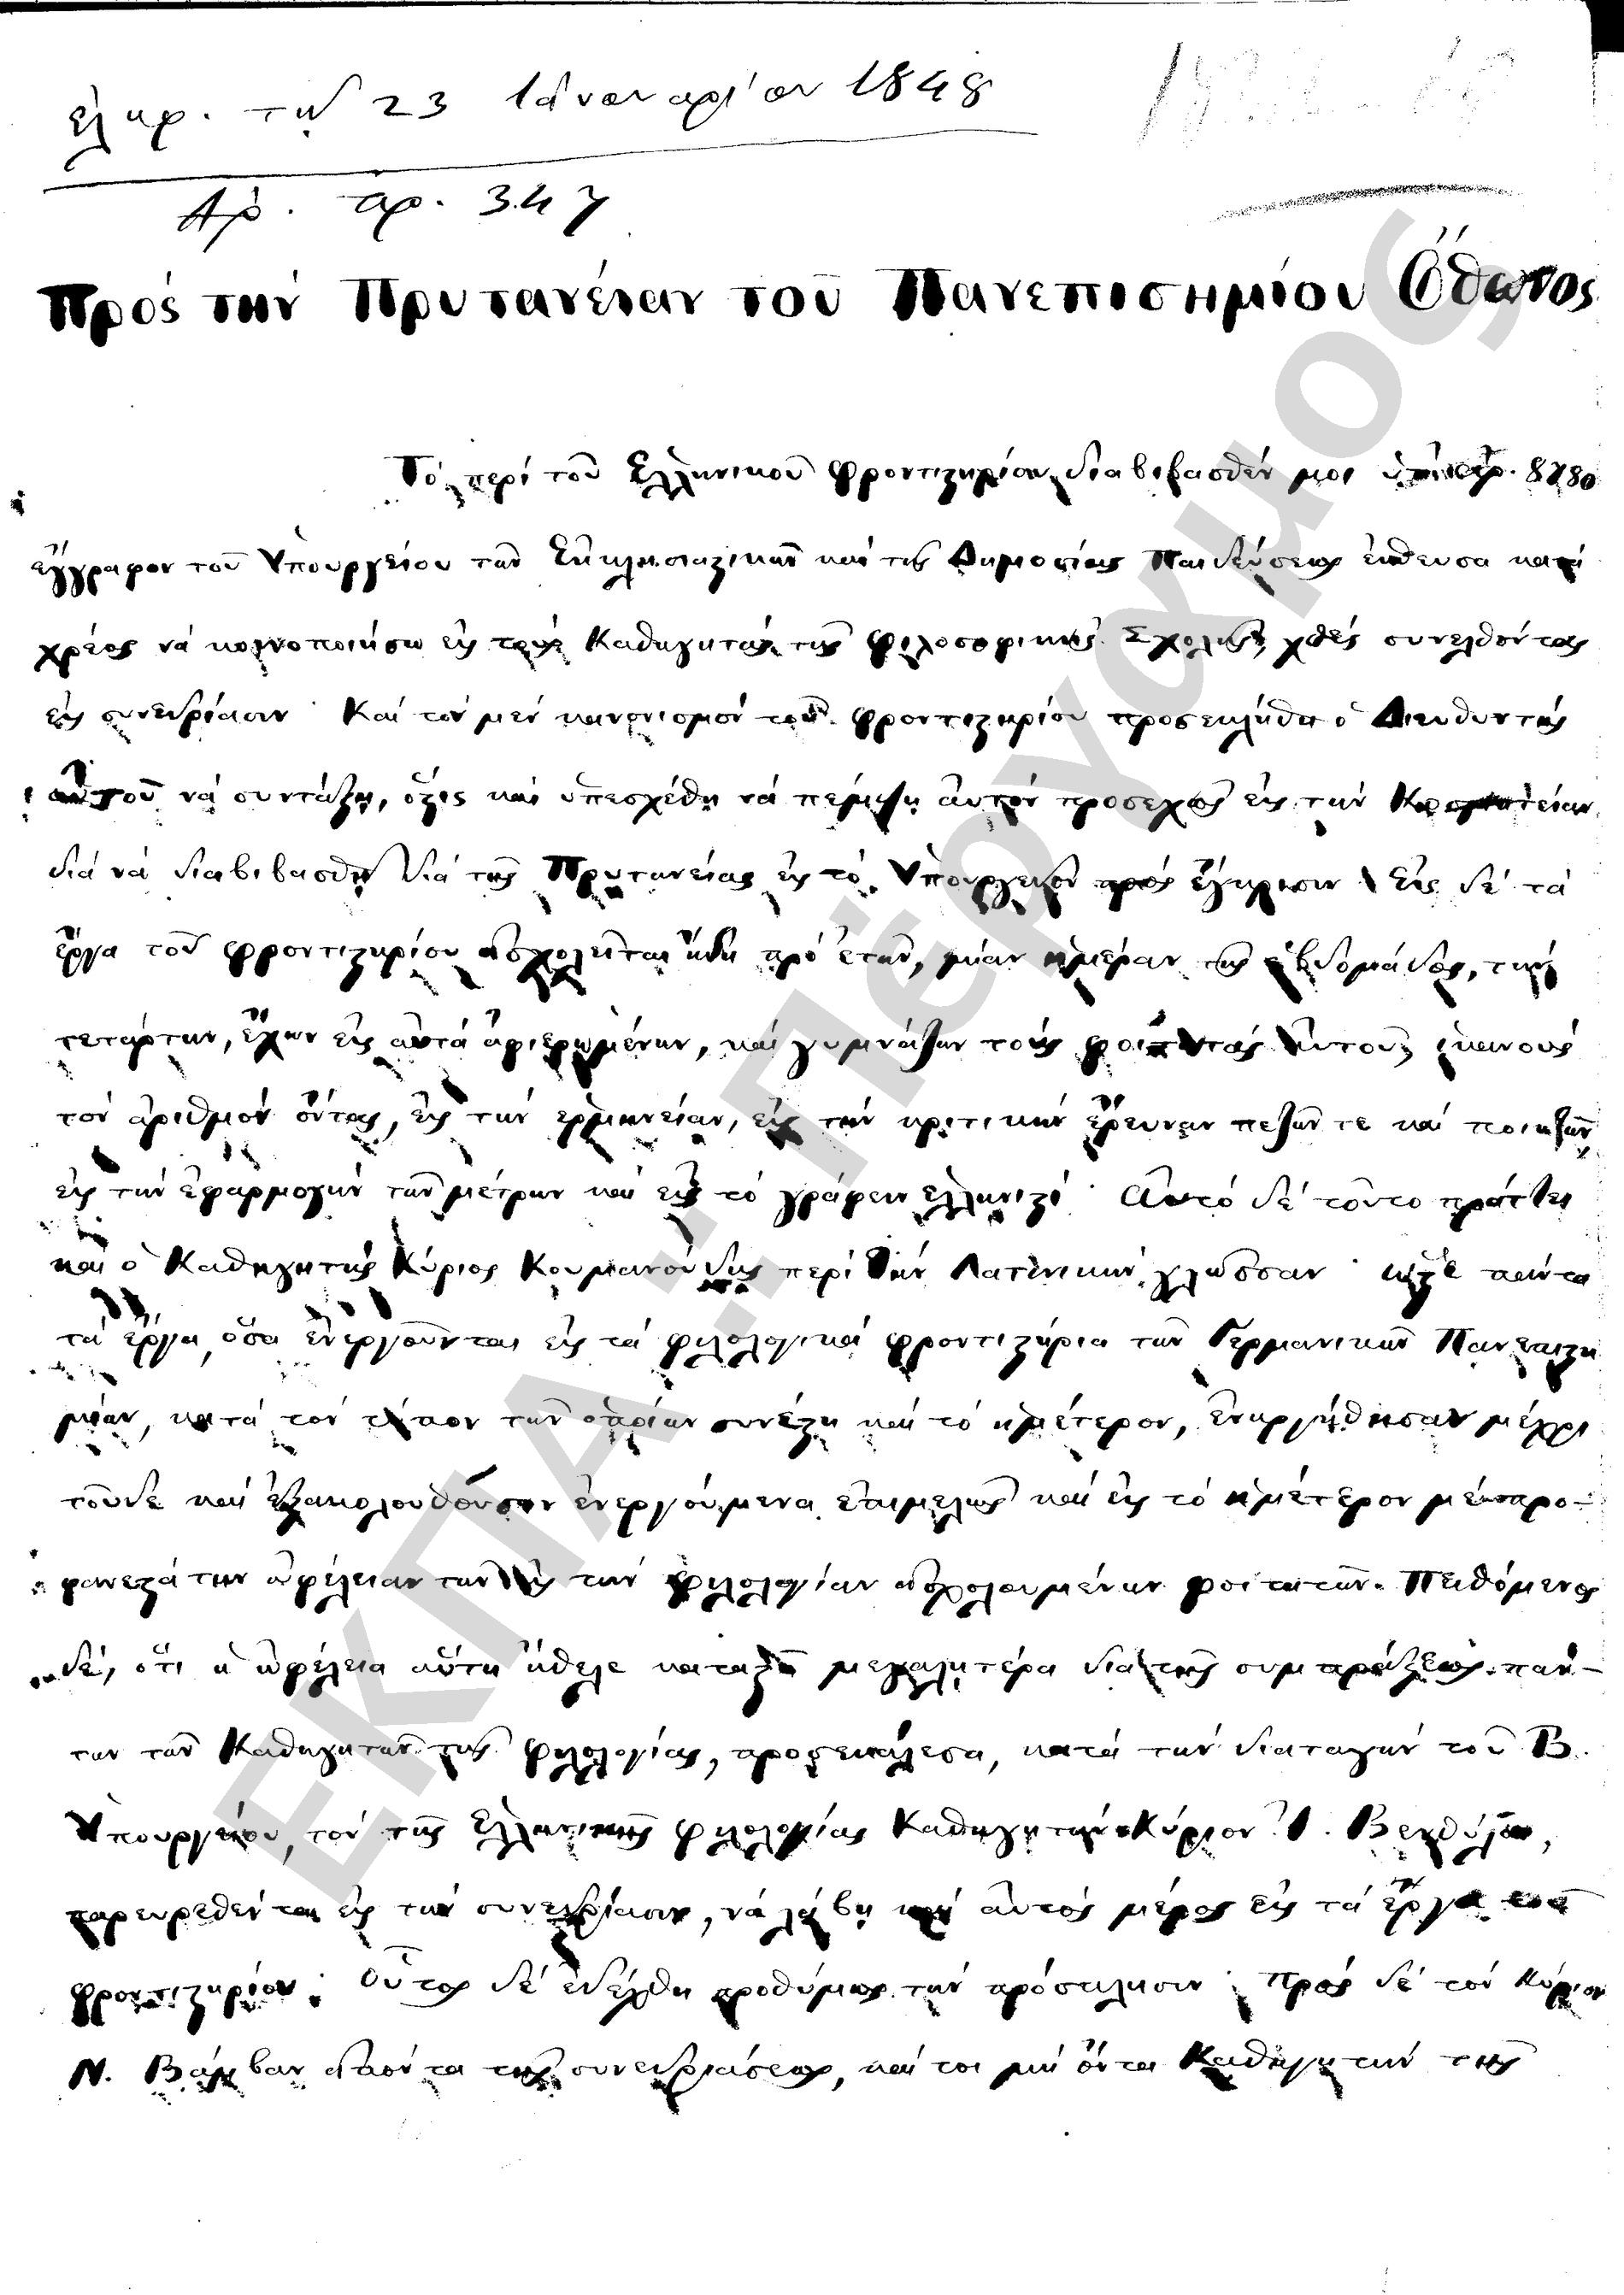 ἐλήφ. τῇ 23 Ἰανουαρίου 1848
Ἀρ. πρ. 347
Πρός τήν Πρυτανείαν τοῦ Πανεπιστημίου Ὄθωνος
Τό περί τοῦ Ἑλληνικοῦ φροντιστηρίου διαβιβασθέν μοι ὑπ' ἀρ. 8780
ἔγγραφον τοῦ Ὑπουργείου τῶν Ἐκκλησιαστικῶν καί τῆς Δημοσίας Παιδεύσεως ἔσπευσα κατά
χρέος νά κοινοποιήσω εἰς τούς Καθηγητάς τῆς φιλοσοφικῆς Σχολῆς, χθές συνελθόντας
εἰς συνεδρίασιν· Καί τόν μέν κανονισμόν τοῦ φροντιστηρίου προσεκλήθη ὁ Διευθυντής
αὐτοῦ νά συντάξῃ, ὅστις καί ὑπεσχέθη νά πέμψῃ αὐτόν προσεχῶς εἰς τήν Κοσμητείαν
διά νά διαβιβασθῇ διά τῆς Πρυτανείας εἰς τό Ὑπουργεῖον πρός ἔγκρισιν· Εἰς δέ τά
ἔργα τοῦ φροντιστηρίου ἀσχολεῖται ἤδη πρό ἐτῶν, μίαν ἡμέραν τῆς ἑβδομάδος, τήν
τετάρτην, ἔχων εἰς αὐτά ἀφιερωμένην, καί γυμνάζων τούς φοιτητάς αὐτοῦ, ἱκανούς
τόν ἀριθμόν ὄντας, εἰς τήν ἑρμηνείαν, εἰς τήν κριτικήν ἔρευναν πεζῶν τε καί ποιητῶν
εἰς τήν ἐφαρμογήν τῶν μέτρων καί εἰς τό γράφειν ἑλληνιστί· Αὐτό δέ τοῦτο πράττει
καί ὁ Καθηγητής Κύριος Κουμανούδης περί τήν Λατινικήν γλῶσσαν· ὥστε πάντα
τά ἔργα, ὅσα ἐνεργοῦνται εἰς τά φιλολογικά φροντιστήρια τῶν Γερμανικῶν Πανεπιστη
μίων, κατά τόν τύπον τῶν ὁποίων συνέστη καί τό ἡμέτερον, ἐνηργήθησαν μέχρι
τοῦδε καί ἐξακολουθοῦσιν ἐνεργούμενα ἐπιμελῶς καί εἰς τό ἡμέτερον μέ προ-
φανεστάτην ὠφέλειαν τῶν εἰς τήν φιλολογίαν ἀσχολουμένων φοιτητῶν. Πειθόμενος
δέ, ὅτι ἡ ὠφέλεια αὕτη ἤθελε καταστῆ μεγαλητέρα διά τῆς συμπράξεως πάν-
των τῶν Καθηγητῶν τῆς φιλολογίας, προσεκάλεσα, κατά τήν διαταγήν τοῦ Β.
Ὑπουργείου, τόν τῆς Ἑλληνικῆς φιλολογίας Καθηγητήν Κύριον Ἰ. Βενθύλον,
παρευρεθέντα εἰς τήν συνεδρίασιν, νά λάβῃ καί αὐτός μέρος εἰς τά ἔργα τοῦ
φροντιστηρίου· Οὗτος δέ ἐδέχθη προθύμως τήν πρόσκλησιν· Πρός δέ τόν Κύριον
Ν. Βάμβαν ἀπόντα τῆς συνεδριάσεως, καί τοι μή ὄντα Καθηγητήν τῆς
ΕΚΠΑ...Πέργαμος